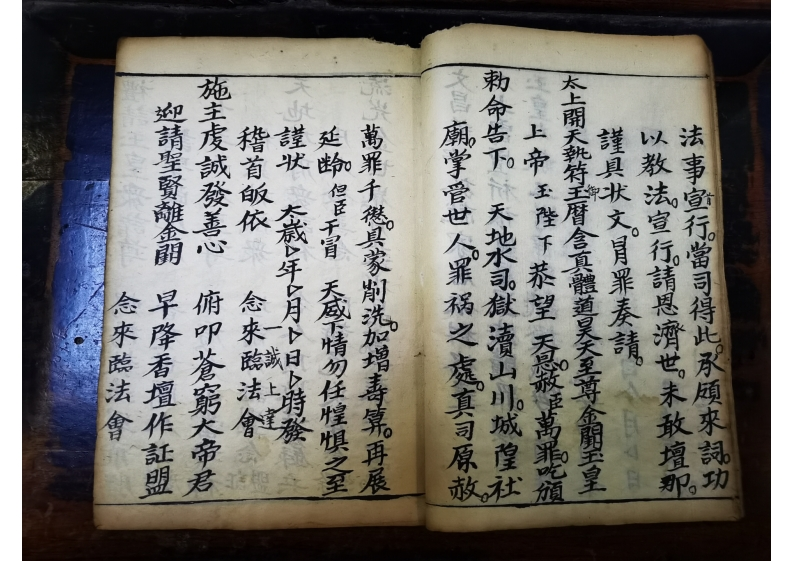 法事宣行。當司得此。承頋來詞。功
以教法。宣行。請恩濟世。未敢壇那。
謹具状文。冐罪奏請。
太上開天執符御玉曆含真體道昊天至尊金闕玉皇
上帝玉陛下 恭望 天恩。赦臣萬罪。吃頒
勅命告下。 天地水司。獄瀆山川。城隍社
廟。掌管世人罪祸之處。真司原赦。
萬罪千愆。具蒙削洗。加增寿筭。再展
延齡。但臣干冒 天威下情勿任惶惧之至
謹状 太歲 年 月 日 時發
一誠上達
稽首皈依 念來臨法會
施主虔誠發善心 俯叩蒼穹大帝君
迎請聖賢離金闕 早降香壇作証盟
念來臨法會